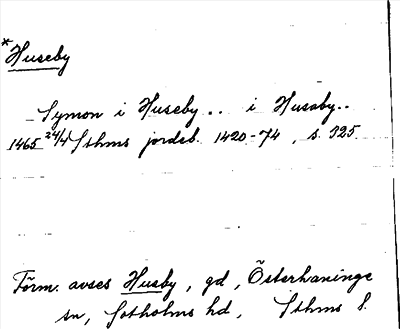 *Huseby
Symon i Huseby .. i Husaby ..
1465 24/4 Sthms jordeb. 1420-74, s. 325.
Förm. avses Husby, gd, Österhaninge
sn, Sotholms hd, Sthms l.